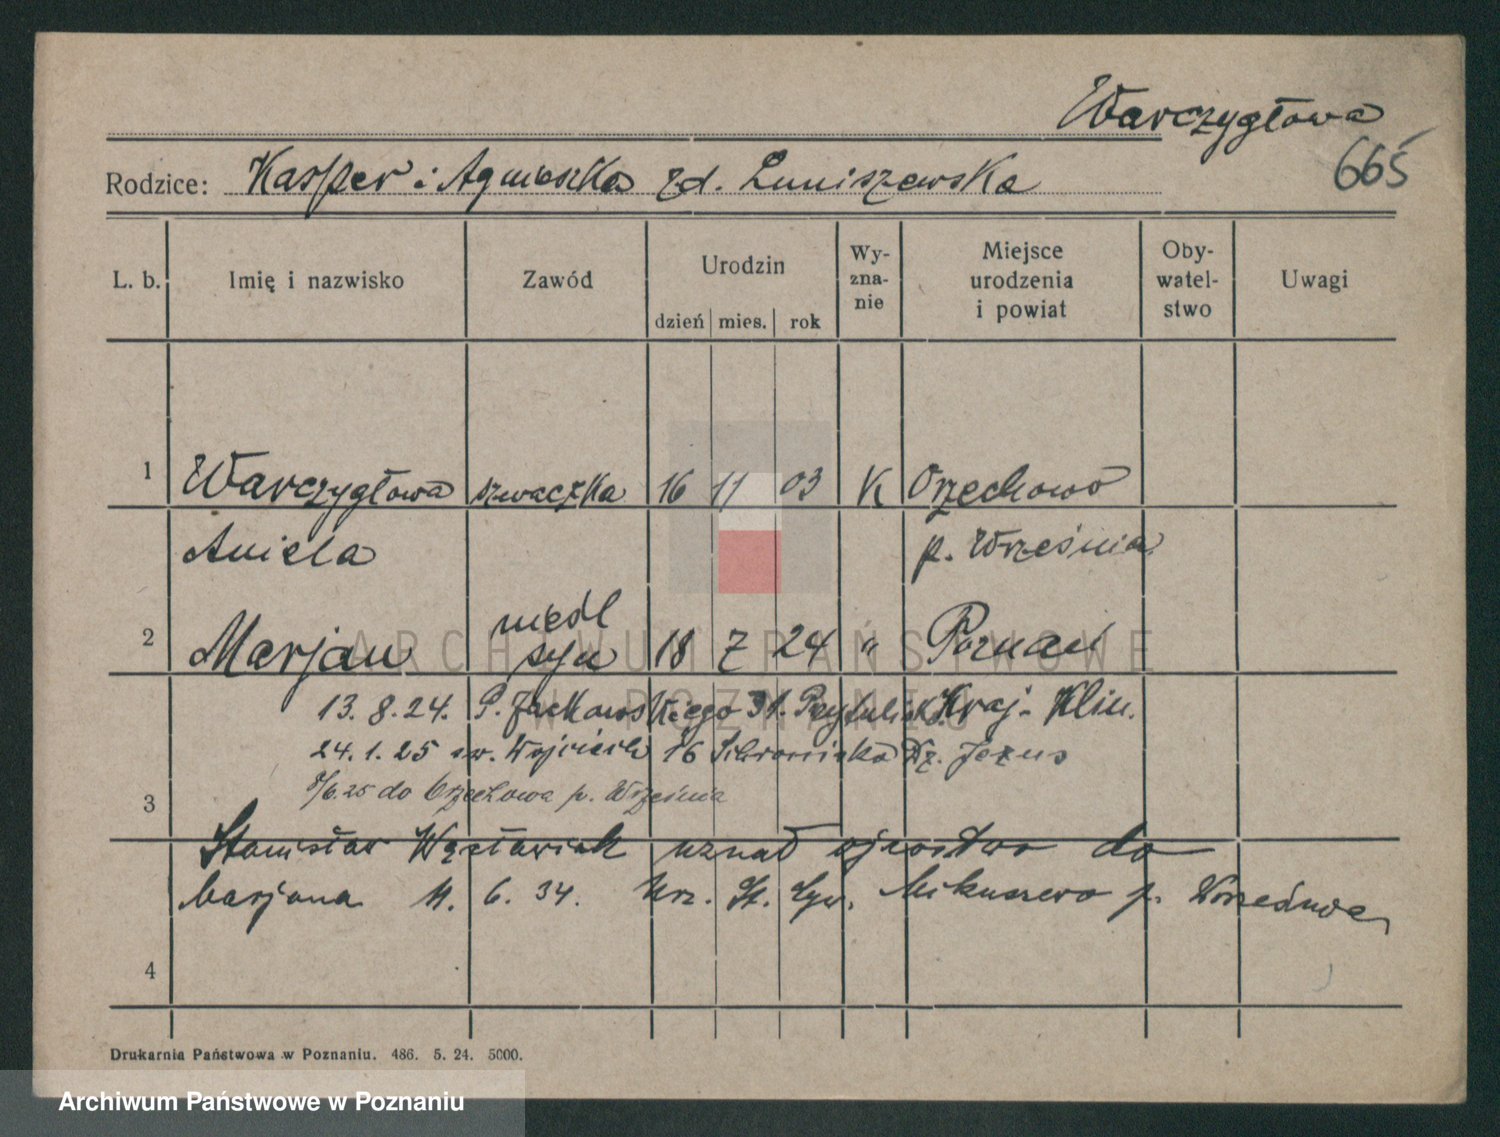 Warczygłowa
665
Rodzice: Kasper i Agnieszka zd. Luniszewska
L. b. Imię i nazwisko Zawód Urodzin dzień mies. rok Wyznanie Miejsce urodzenia i powiat Obywatelstwo Uwagi
1 Warczygłowa szwaczka 16 11 03 K Orzechowo
Aniela p. Września
nieśl
2 Marjan syn 18 7 24 " Poznań
13. 8. 24. P. Jackowskiego 31. Kraj. Klin.
24. 1. 25 św. Wojciech 16 Dz. Jezus
3 9/6.25 do Orzechowa p. Września
Stanisław Węcławiak uznał ojcostwo do
Marjana 11. 6. 34. Urz. St. Cyw. Mikuszewo p. Września
4
Drukarnia Państwowa w Poznaniu. 486. 5. 24. 5000.
ARCHIWUM PAŃSTWOWE
W POZNANIU
Archiwum Państwowe w Poznaniu